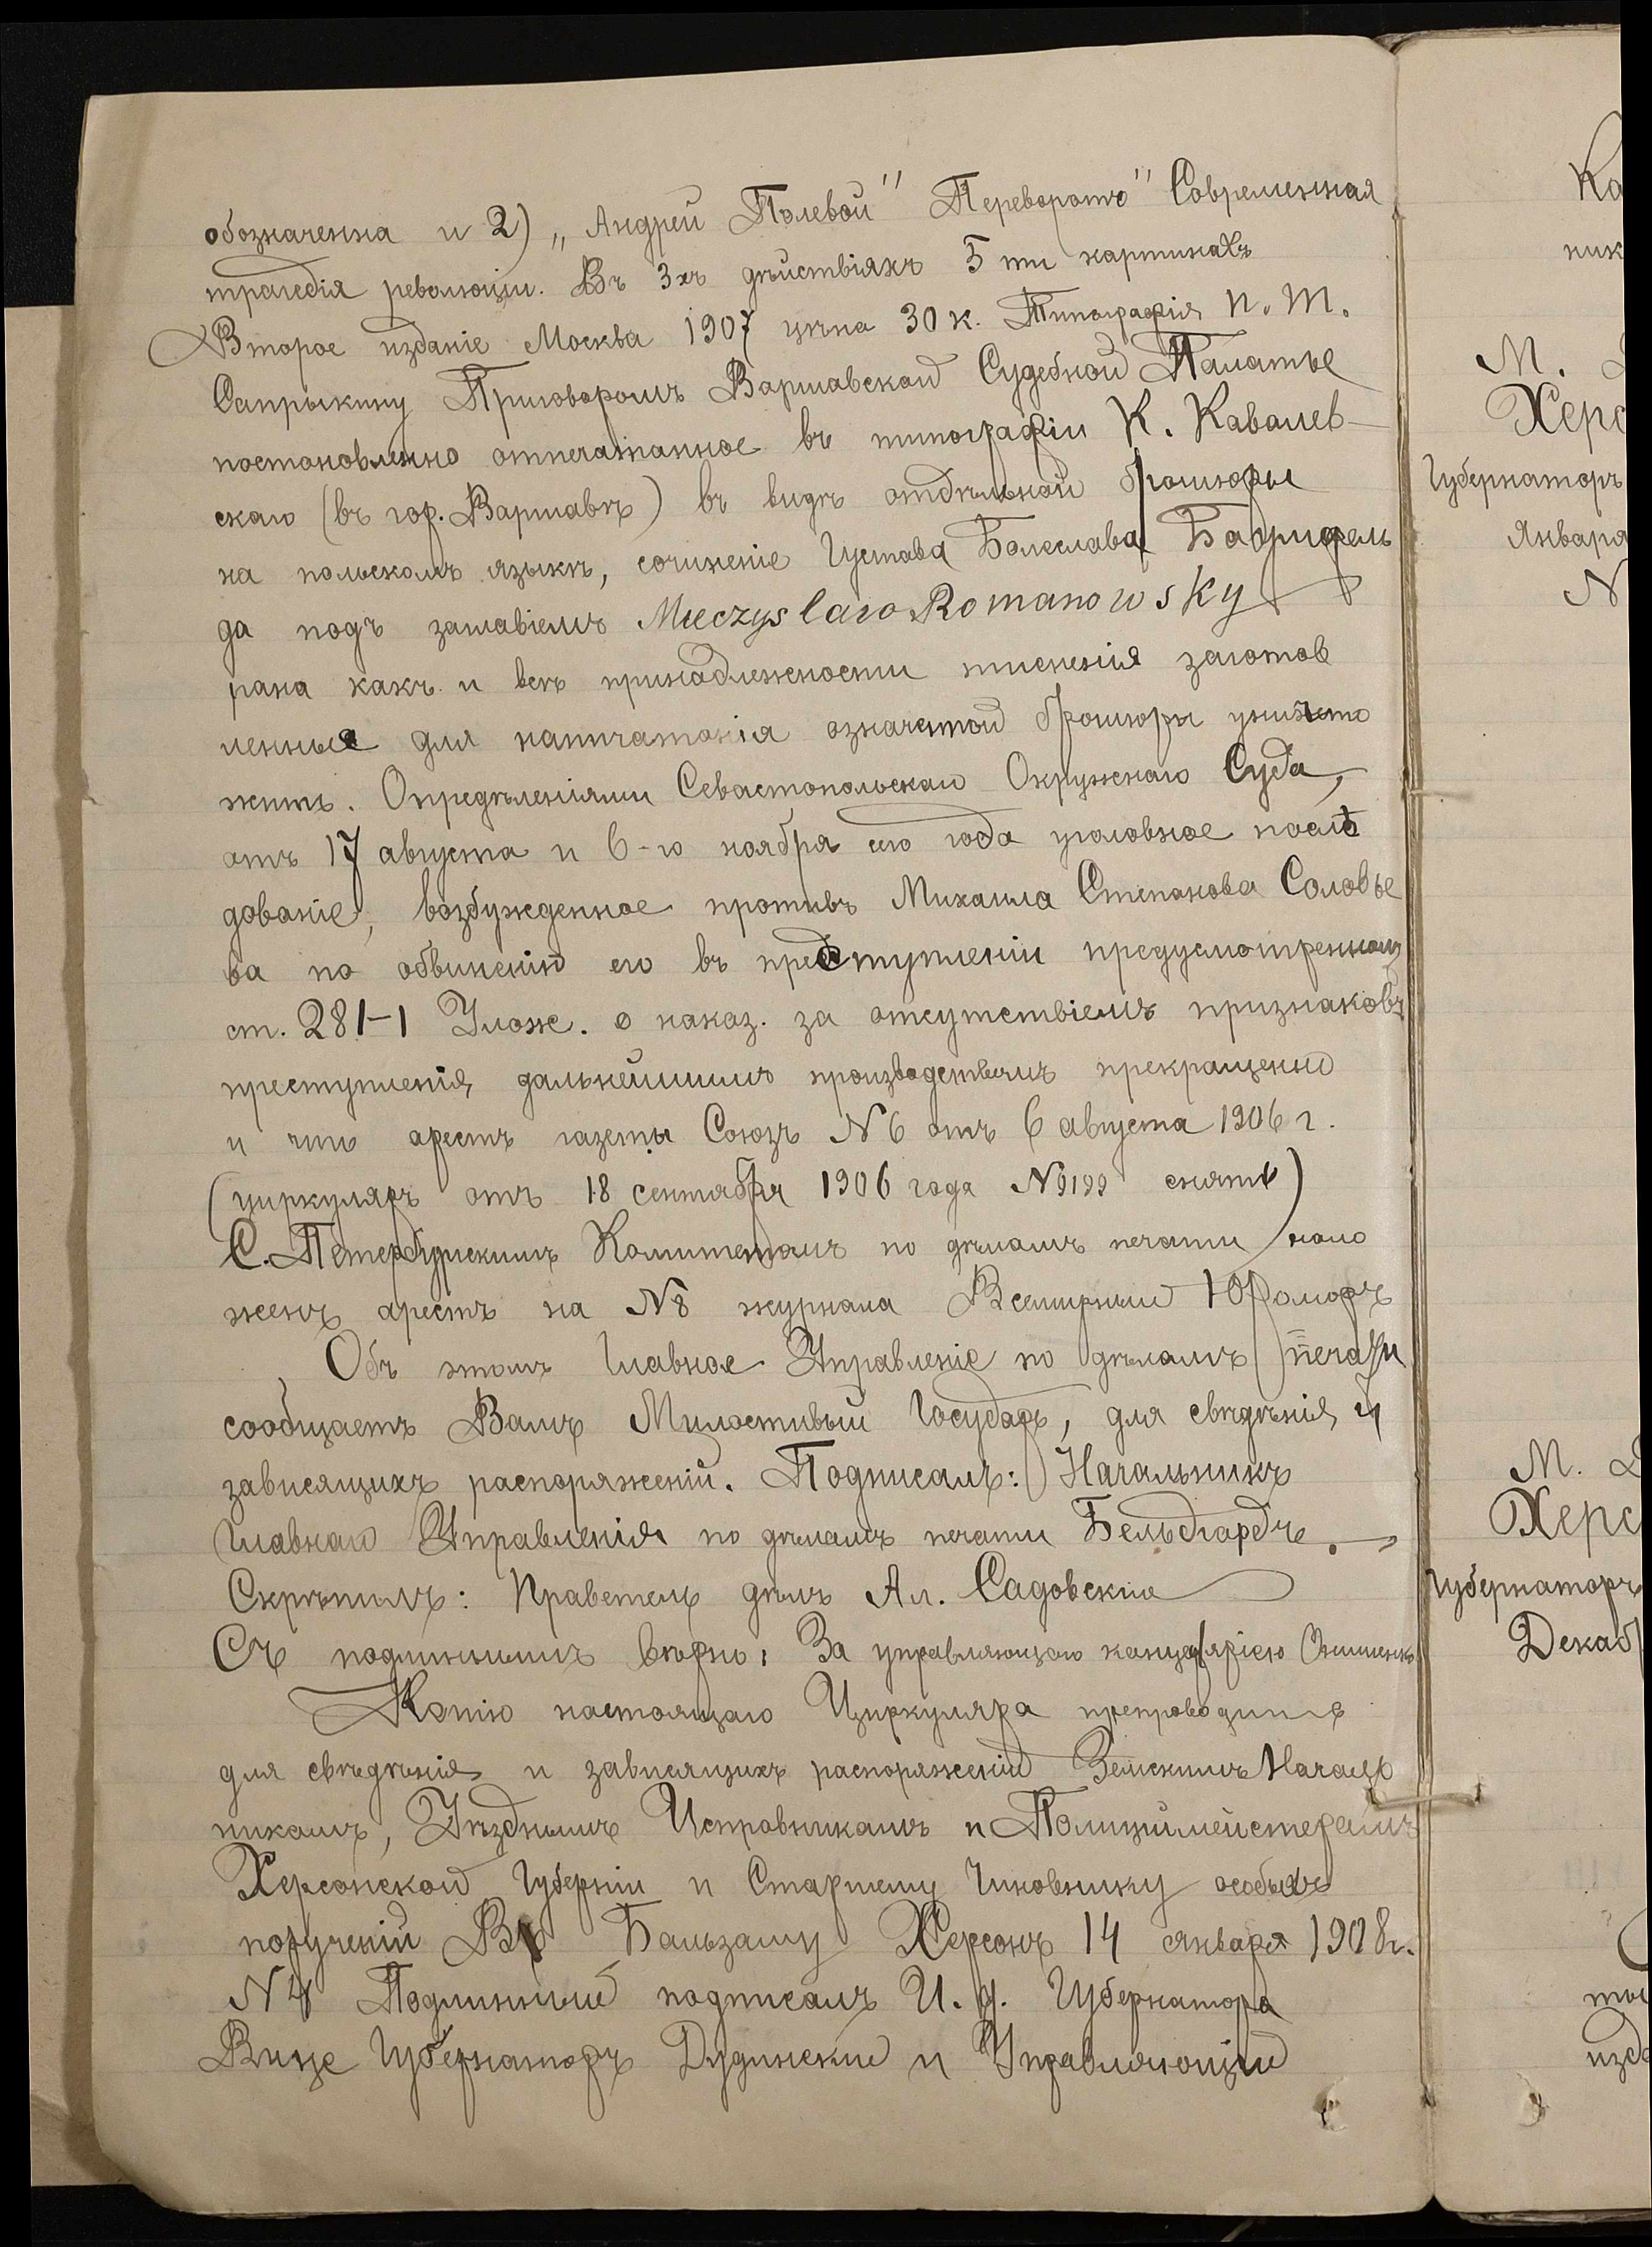 обозначенна и 2) „Андрей Полевой" Переворотъ" Современная
трагедія революціи. Въ 3хъ дѣйствіяхъ 5 ти картинахъ
Второе изданіе Москва 1907 цѣна 30 к. Типографія П. М.
Сапрыкину Приговоромъ Варшавской Судебной Палатые
постановленно отпечатанное въ типографіи К. Кавалев-
скаго (въ гор. Варшавѣ) въ видѣ отдѣльной брошюры
на польскомъ языкѣ, сочиненіе Густава Болеслава
да подъ заглавіемъ Mieczyslaw Romanowsky
рана какъ и всѣ принадлежности тисненія заготов
ленныя для напичатанія означеной брошюры уничто
жить. Опредѣленіями Севастопольскаго Окружнаго Суда,
отъ 17 августа и 6-го ноября сего года уголовное послѣ
дованіе, возбужденное противъ Михаила Степанова Соловье
ва по обвиненію его въ преступленіи предусмотренномъ
ст. 281-1 Улож. о наказ. за отсутствіемъ признаковъ
преступленія, дальнейшимъ производствомъ прекращенно
и что арестъ газеты Союзъ №6 отъ 6 августа 1906 г.
(циркуляръ отъ 18 сентября 1906 года №9199 снятъ)
С. Петербургскимъ Комитетомъ по дѣламъ печати нало
женъ арестъ на №8 журнала Всемирный Юморъ
Объ этомъ Главное Управленіе по дѣламъ печати
сообщаетъ Вамъ Милостивый Государь, для свѣдѣнія и
зависящихъ распоряженій. Подписалъ: Начальникъ
Главнаго Управленія по дѣламъ печати Бельгардъ.
Скрѣпилъ: Праветель дѣлъ Ал. Садовскій
Съ подлиннымъ вѣрно: За управляющаго канцеляріею
Копію настоящаго Циркуляра препроводить
для свѣдѣнія и зависящихъ распоряженій Земскимъ Началь
никамъ, Уѣзднымъ Исправникамъ и Полицимейстерамъ
Херсонской Губерніи и Старшему Чиновнику особыхъ
порученій Бальзаму Херсонъ 14 января 1908г.
№4 Подлинный подписалъ И. д. Губернатора
Вице Губернаторъ Дудинскій и Управляющій
Ка
ник
М.
Херс
Губернаторъ
Января
N
М.
Херс
Губернаторъ
Декаб
изд